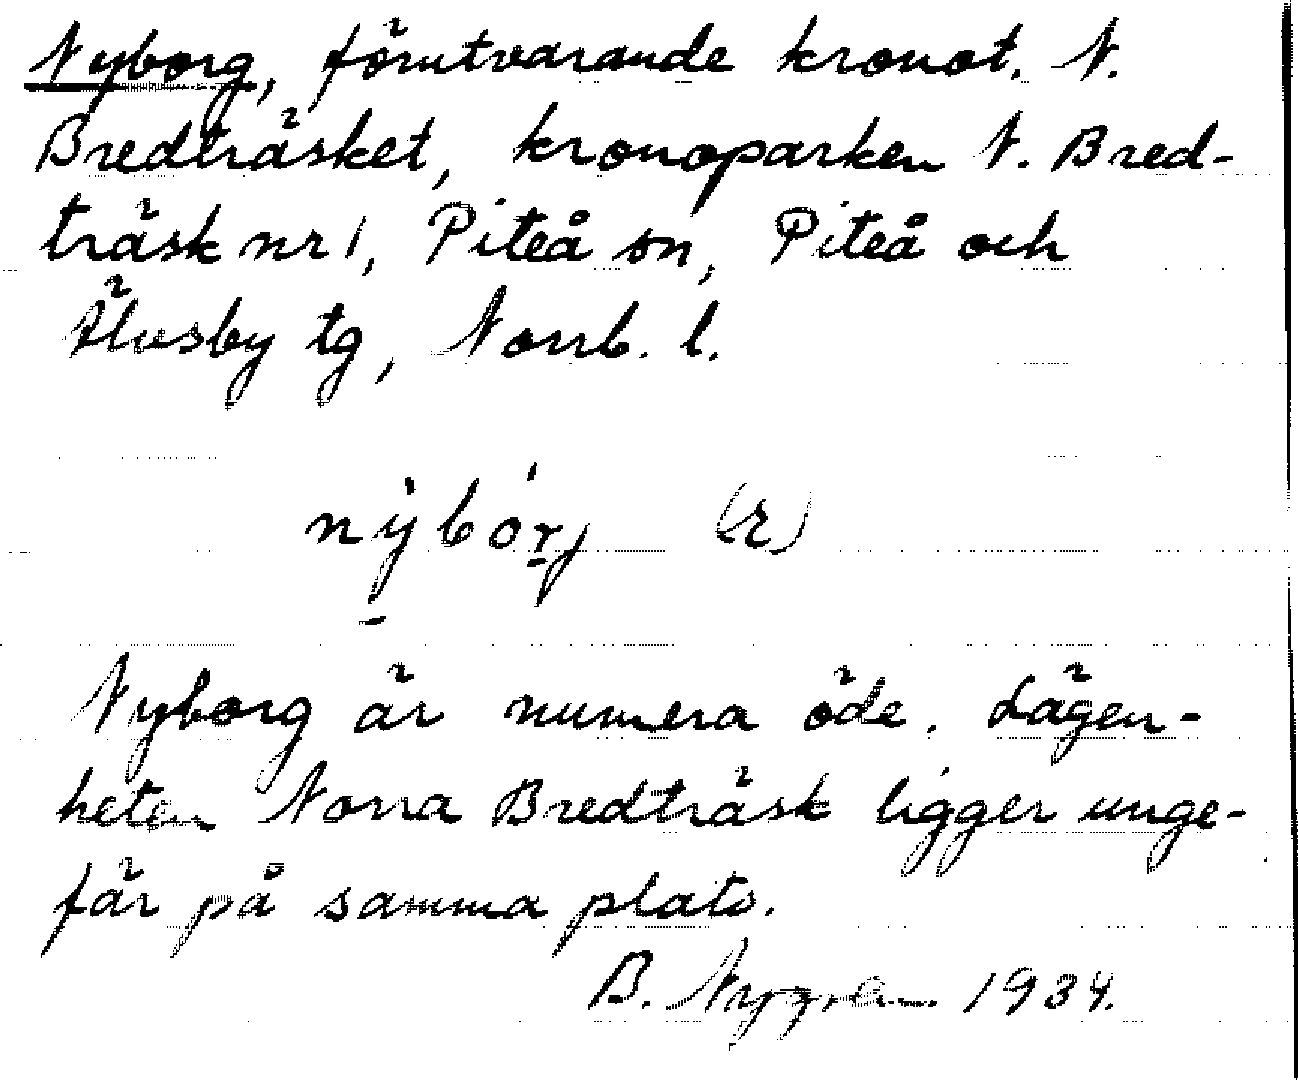 Nyborg, förutvarande kronot. N.
Bredträsket, kronoparken N. Bred-
träsk nr 1, Piteå sn, Piteå och
Älvsby tg, Norrb. l.
nýbórj (r)
Nyborg är numera öde. Lägen-
heten Norra Bredträsk ligger unge-
fär på samma plats.
B. Nygren 1934.